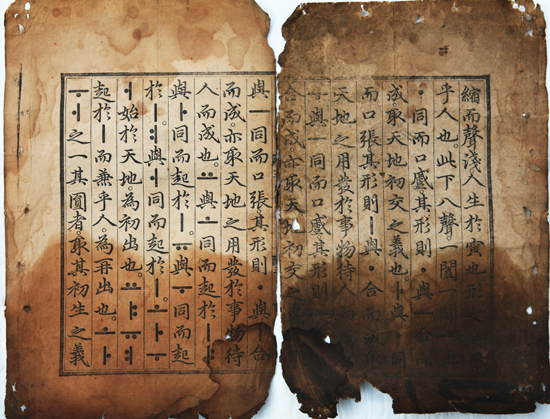 縮而聲淺。人生於寅也。形
乎人也。此下八聲。一闔一闢
ㆍ同而口蹙。其形則ㆍ與ㅡ合
成。取天地初交之義也。ㅏ與ㆍ同
而口張。其形則ㅣ與ㆍ合而成
天地之用發於事物待人而成
ㅜ與ㅡ同而口蹙。其形則ㅡ
合而成。亦取天地初交之
與ㅡ同而口張。其形則ㆍ與ㅣ合
而成。亦取天地之用發於事物待
人而成也。ㅛ與ㅗ同而起於ㅣ。ㅑ
與ㅏ同而起於ㅣ。ㅠ與ㅜ同而起
於ㅣ。ㅕ與ㅓ同而起於ㅣ。ㅗㅏㅜ
ㅓ始於天地。為初出也。ㅛㅑㅠㅕ
起於ㅣ而兼乎人。為再出也。ㅗㅏ
ㅜㅓ之一其圓者。取其初生之義